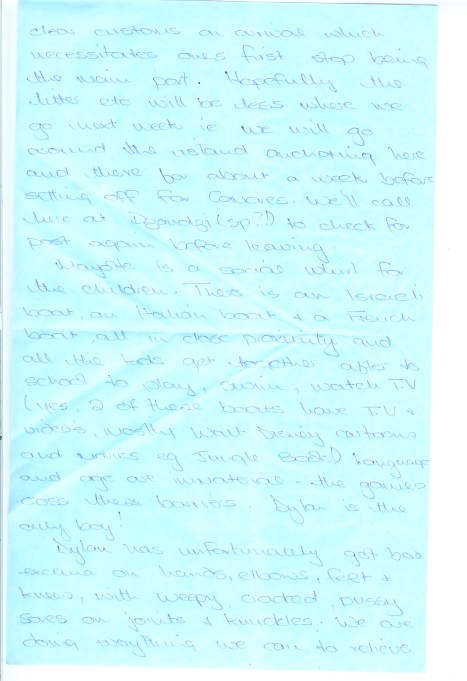 clear customs on arrival which
necessitates ones first stop being
the main port. Hopefully the
litter etc will be less where we
go next week ie we will go
around the island anchoring here
and there for about a week before
setting off for Comores. We'll call
here at Dzoudzi (sp?!) to check for
post again before leaving
Mayotte is a social whirl for
the children. There is an Israeli
boat, an Italian boat & a French
boat, all in close proximity and
all the kids get together after
school to play, swim, watch T.V
(yes, 2 of these boats have T.V &
video's, mostly Walt Disney cartoons
and movies eg Jungle Book!) Language
and age are immaterial - the games
cross these barriers. Dylan is the
only boy!
Dylan has unfortunately got bad
excema on hands, elbows, feet &
knees, with weepy, cracked, pussy
sores on joints & knuckles. We are
doing everything we can to relieve